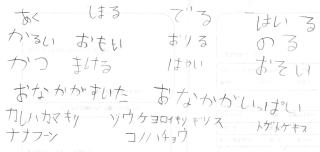 あく しまる でる はいる
かるい おもい おりる のる
かつ まける はやい おそい
おなかがすいた おなかがいっぱい
カレハカマキリ ゾウ トゲトゲキス
ナナフシ コノハチョウ